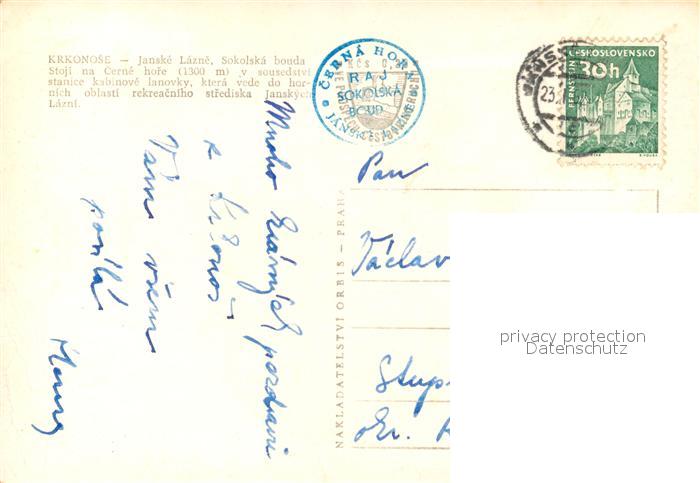 KRKONOŠE — Janské Lázně, Sokolská bouda
Stojí na Černé hoře (1300 m) v sousedství
stanice kabinové lanovky, která vede do hor-
ních oblastí rekreačního střediska Janských
Lázní.
ČERNÁ HORA
RAJ
SOKOLSKÁ
BOUD
ČESKOSLOVENSKO
30h
PERNŠTEJN
23
Mnoho
pozdravů
z Krkonoš
Vám všem
posílá
NAKLADATELSTVÍ ORBIS — PRAHA
Pan
Václav
Stup
okr.
privacy protection
Datenschutz